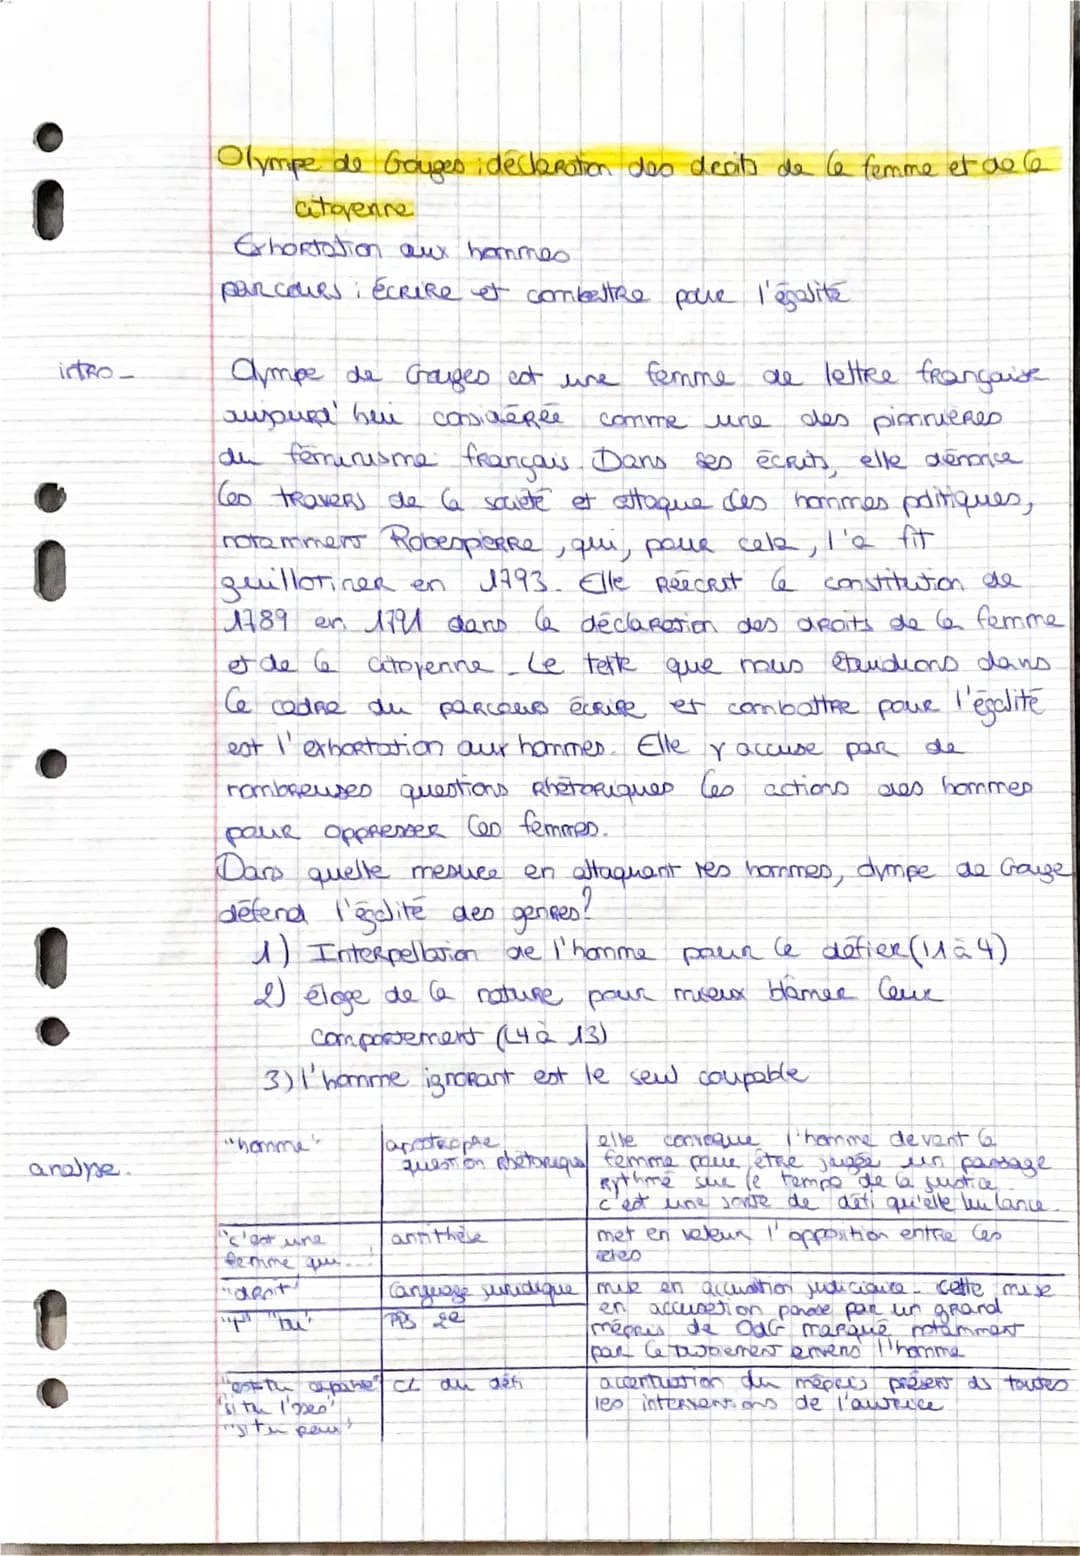 Olympe de Gouges : déclaration des droits de la femme et de la
citoyenne
Exhortation aux hommes
parcours : écrire et combattre pour l'égalité
intro -
Olympe de Gouges est une femme de lettre française
aujourd'hui considérée comme une des pionnières
du féminisme français. Dans ses écrits, elle dénonce
les travers de la société et attaque des hommes politiques,
notamment Robespierre, qui, pour cela, l'a fit
guillotiner en 1793. Elle réécrit la constitution de
1789 en 1791 dans la déclaration des droits de la femme
et de la citoyenne. Le texte que nous étudions dans
le cadre du parcours écrire et combattre pour l'égalité
est l'exhortation aux hommes. Elle y accuse par de
nombreuses questions rhétoriques les actions des hommes
pour oppresser les femmes.
Dans quelle mesure en attaquant les hommes, Olympe de Gouge
défend l'égalité des genres?
1) Interpellation de l'homme pour le défier (l1 à 4)
2) éloge de la nature pour mieux blâmer leur
comportement (L4 à 13)
3) l'homme ignorant est le seul coupable
analyse.
"homme"
apostrophe
question rhétorique
elle convoque l'homme devant la
femme pour être jugée un passage
rythmé sur le tempo de la justice.
c'est une sorte de défi qu'elle lui lance.
"c'est une
femme qui..."
antithèse
met en valeur l'opposition entre les
"droit"
language juridique
mise en accusation judiciaire. cette mise
en accusation passe par un grand
mépris de OdG marqué notamment
par le tutoiement envers l'homme
"tu"
PPS 2e
"est-tu capable"
"si tu l'oses"
"si tu peux"
CL du défi
accentuation du mépris présent ds toutes
les interventions de l'autrice